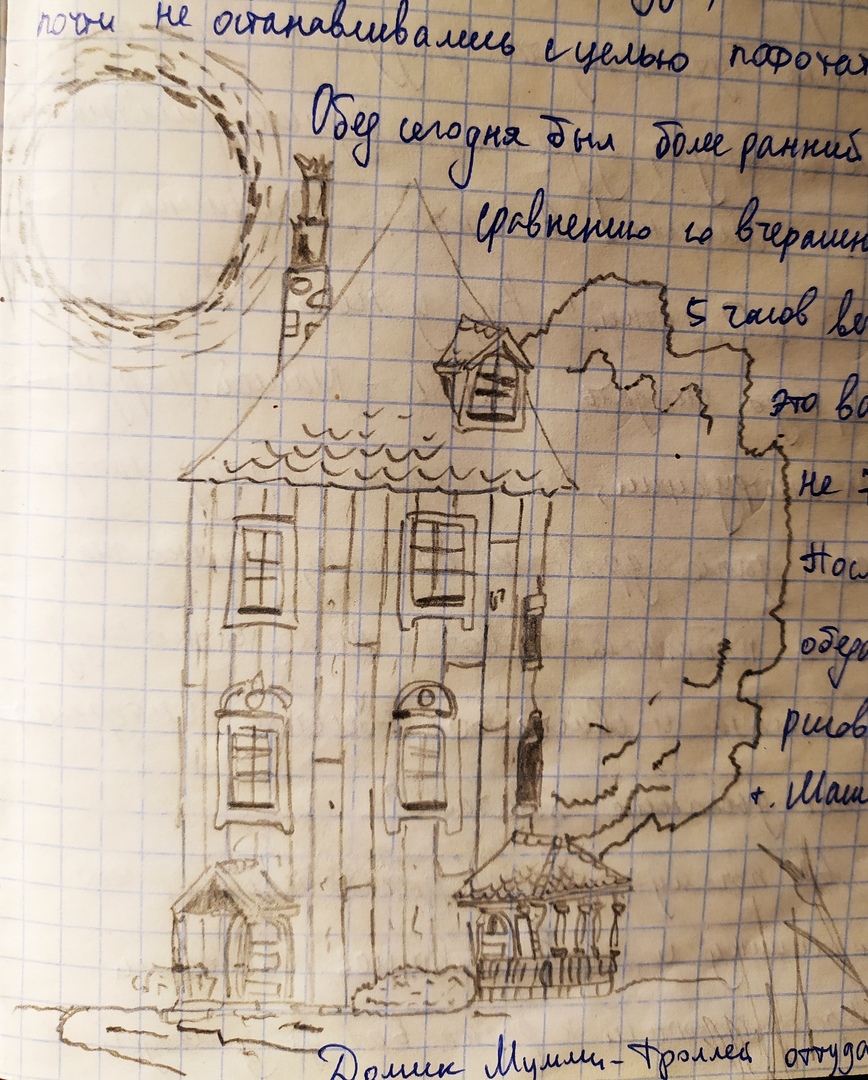 почти не останавливались с целью пофотат
Обед сегодня был более ранний
сравнению со вчерашн
5 часов ве
это во
не
Посл
обеда
рисов
т. Маш
Домик Мумми-Троллей оттуда